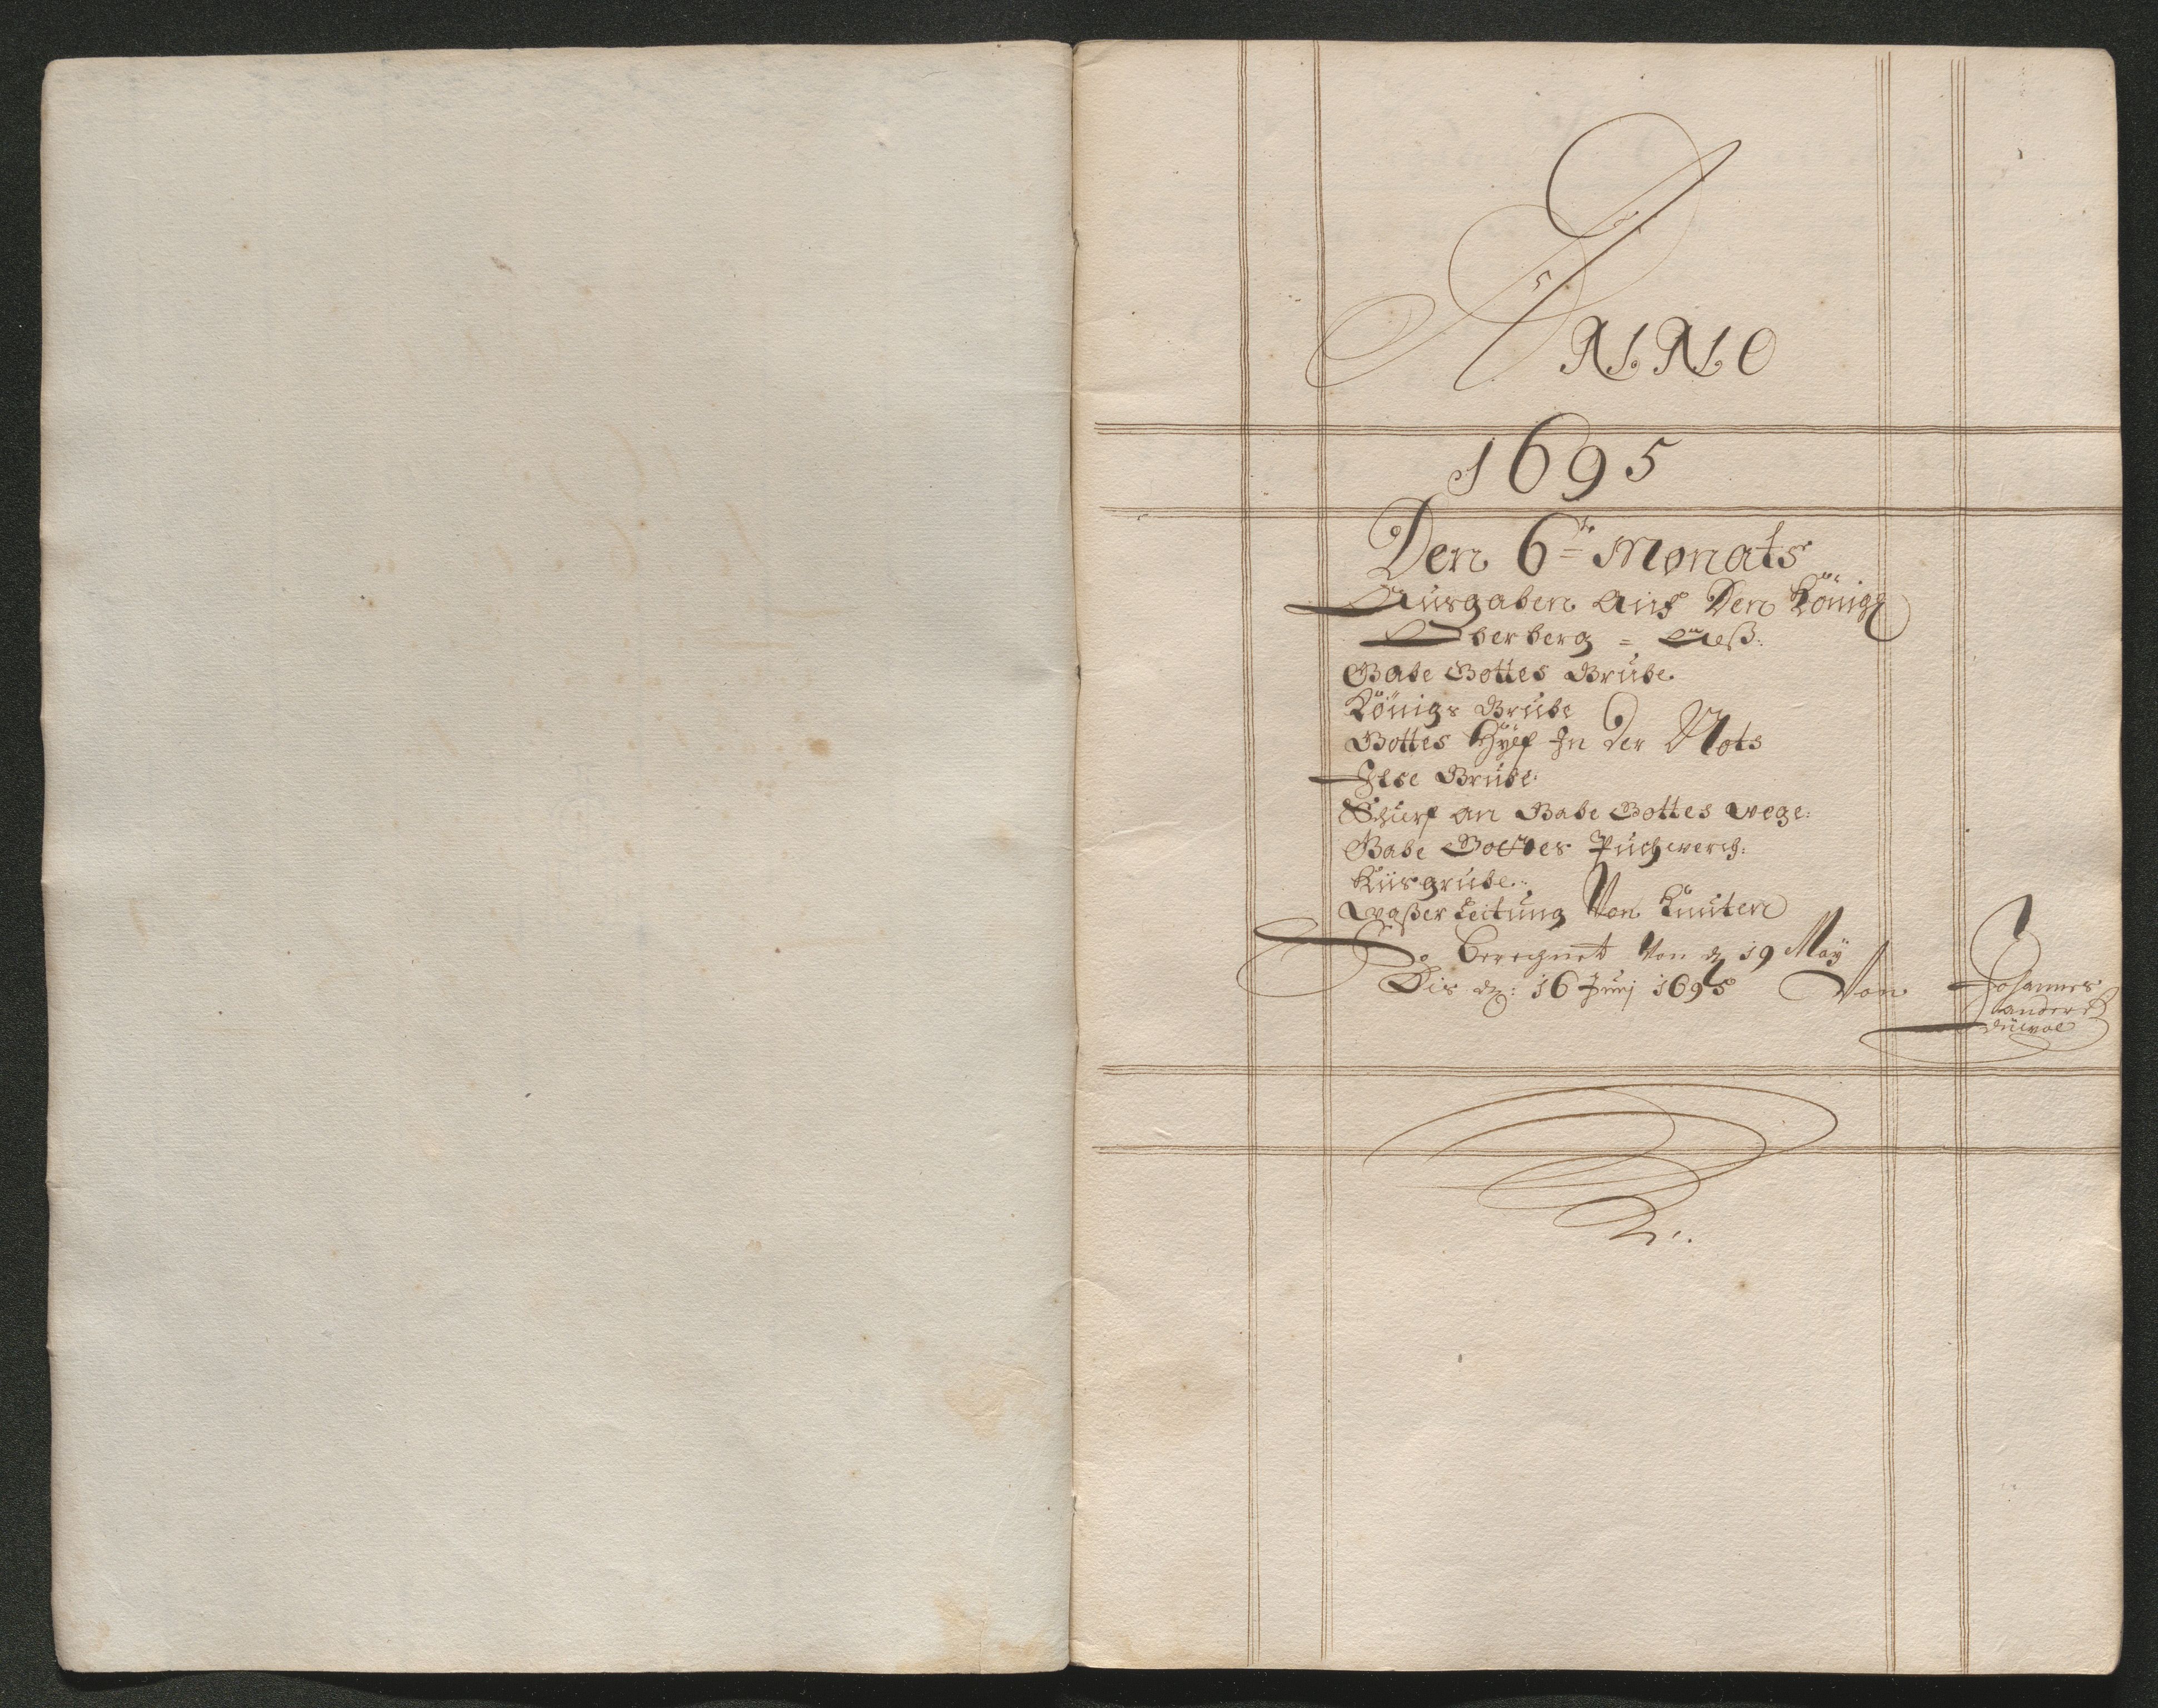 ANNO
1695
Den 6te Monats
Ausgaben auf Den Königl
Oberberg =
Gabe Gottes Grube
Königs Grube
Gottes Hylf In der Nots
Grube:
Schurf an Gabe Gottes wege:
Gabe Gottes Puchwerch:
Kiisgrube:
Waßer Leitung Von Knuten
So berechnet Von d 19 May
Bis d: 16 Junj 1695 Von Johannes
anders